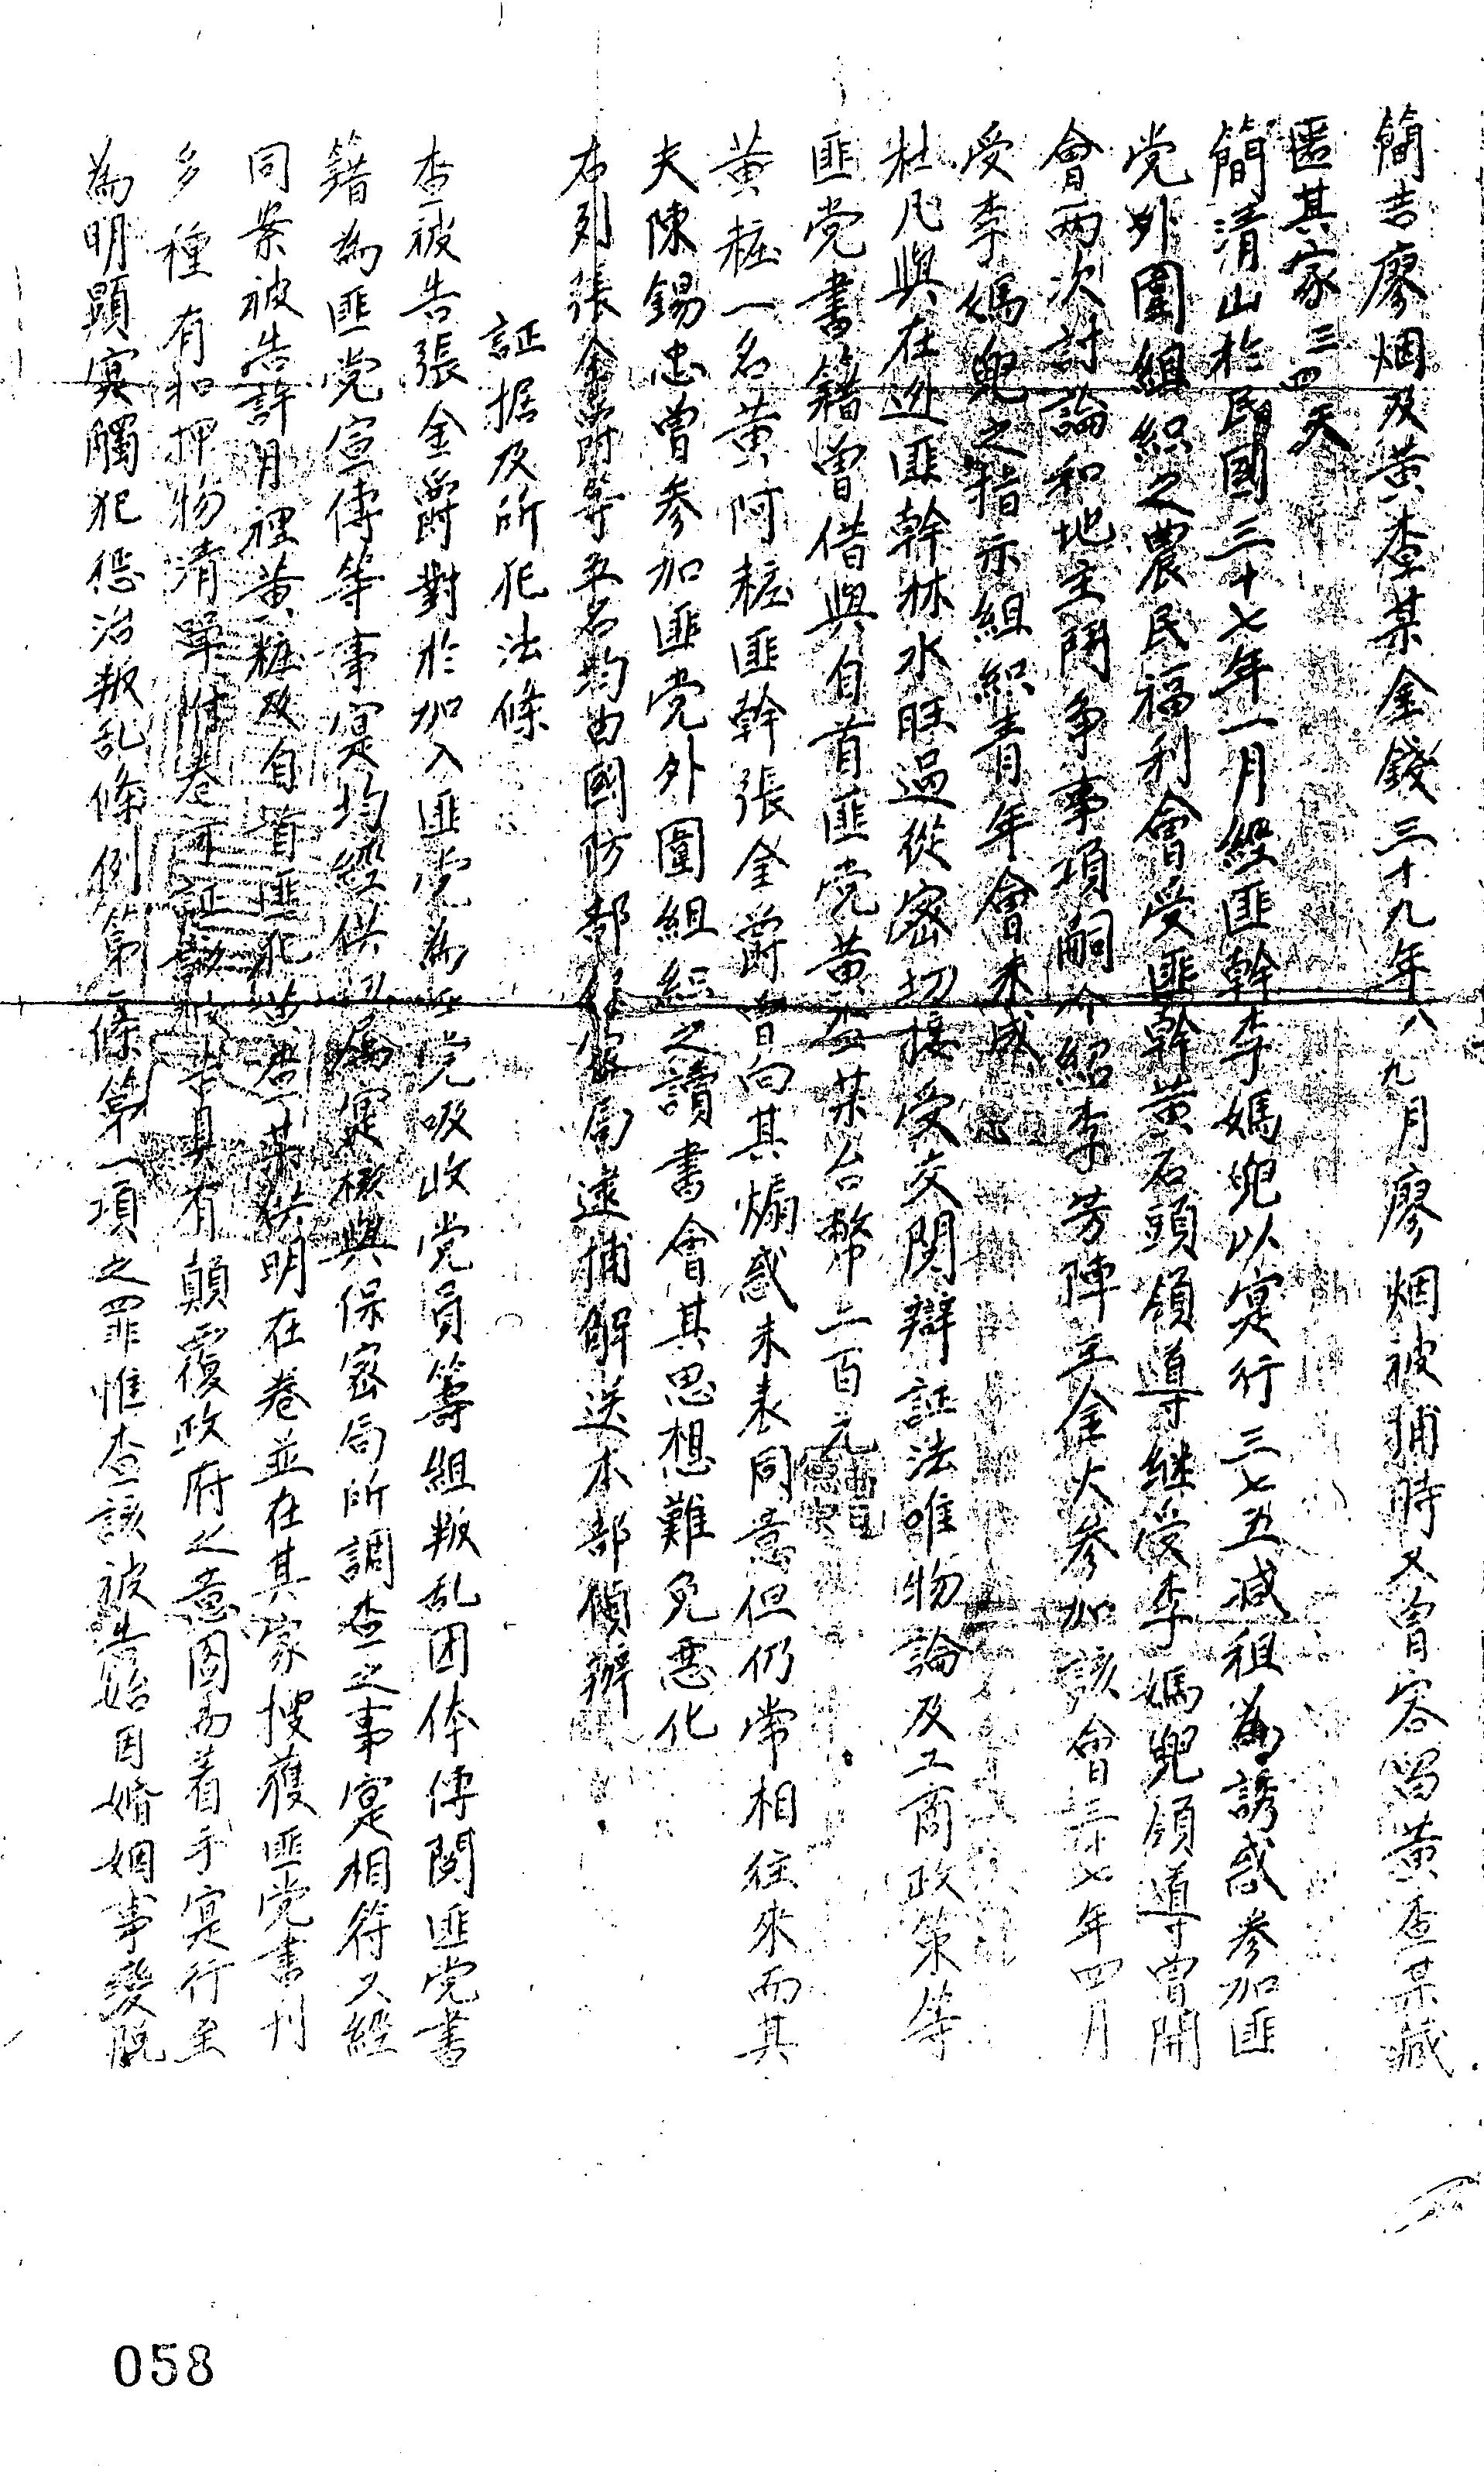 簡吉廖烟及黃查某金錢三十九年八九月廖烟被捕時又曾容留黃查某藏
匿其家三四天
簡清山於民國三十七年一月經匪幹李媽兜以寔行三七五減租為誘惑參加匪
党外圍組織之農民福利會受匪幹黃石頭領導継受李媽兜領導曾開
會兩次討論和地主鬥争事項嗣介紹李芳陣王金火參加該會三十七年四月
受李媽兜之指示組織青年會未成
杜凡與在逃匪幹林水旺過從密切接受交閱辯証法唯物論及工商政策等
匪党書籍曾借與自首匪党黃查某台幣二百元
黃粧一名黃阿粧匪幹張金爵曾向其煽惑未表同意但仍常相往來而其
夫陳錫忠曾參加匪党外圍組織之讀書會其思想難免惡化
右列張金爵等五名均由國防部保密局逮捕解送本部偵辦
証据及所犯法條
查被告張金爵對於加入匪党為匪党吸收党員籌組叛乱团体傳閱匪党書
籍為匪党宣傳等事寔均經供認屬寔核與保密局所調查之事寔相符又經
同案被告許月裡黃粧及自首匪犯黃查某供明在卷並在其家搜獲匪党書刊
多種有扣押物清單附卷可証該被告具有顛覆政府之意図而着手寔行至
為明顕寔觸犯惩治叛乱條例第二條第一項之罪惟查該被告始因婚姻事變脫
058